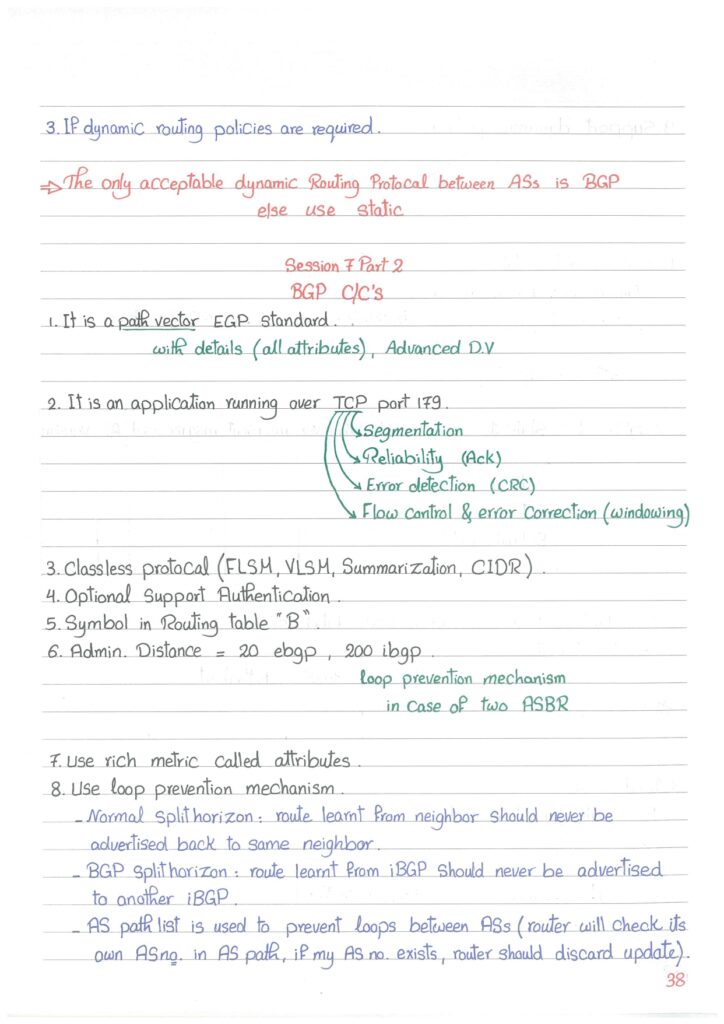 3. If dynamic routing policies are required.
⇒ The only acceptable dynamic Routing Protocal between ASs is BGP
else use static
Session 7 Part 2
BGP C/C's
1. It is a path vector EGP standard.
with details (all attributes), Advanced D.V
2. It is an application running over TCP port 179.
Segmentation
Reliability (Ack)
Error detection (CRC)
Flow control & error correction (windowing)
3. Classless protocal (FLSM, VLSM, Summarization, CIDR).
4. Optional Support Authentication.
5. Symbol in Routing table "B".
6. Admin. Distance = 20 ebgp, 200 ibgp.
loop prevention mechanism
in case of two ASBR
7. Use rich metric called attributes.
8. Use loop prevention mechanism.
- Normal Splithorizon: route learnt from neighbor should never be
advertised back to same neighbor.
- BGP Splithorizon: route learnt from iBGP should never be advertised
to another iBGP.
- AS path list is used to prevent loops between ASs (router will check its
own AS no. in AS path, if my AS no. exists, router should discard update).
38